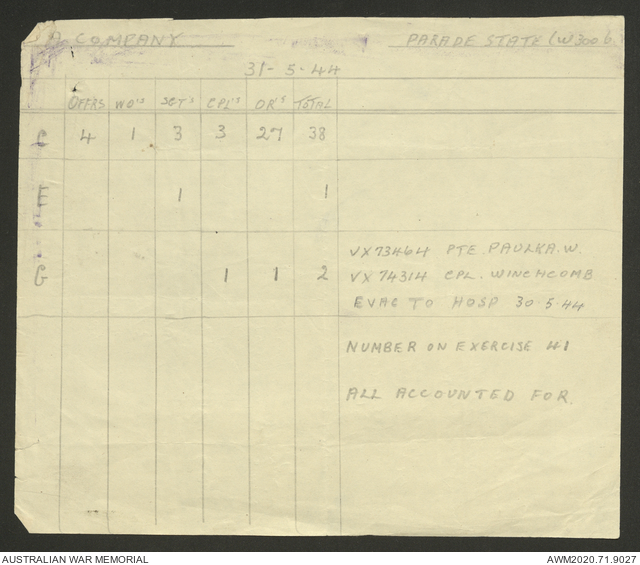 A COMPANY PARADE STATE (W300 6.
31-5-44
OFFRS WO'S SGT'S CPL'S OR'S TOTAL
C 4 1 3 3 27 38
F 1 1
VX73464 PTE. PAULKA. W.
G 1 1 2 VX74314 CPL. WINCHCOMB
EVAC TO HOSP 30.5.44
NUMBER ON EXERCISE 41
ALL ACCOUNTED FOR.
AUSTRALIAN WAR MEMORIAL AWM2020.71.9027